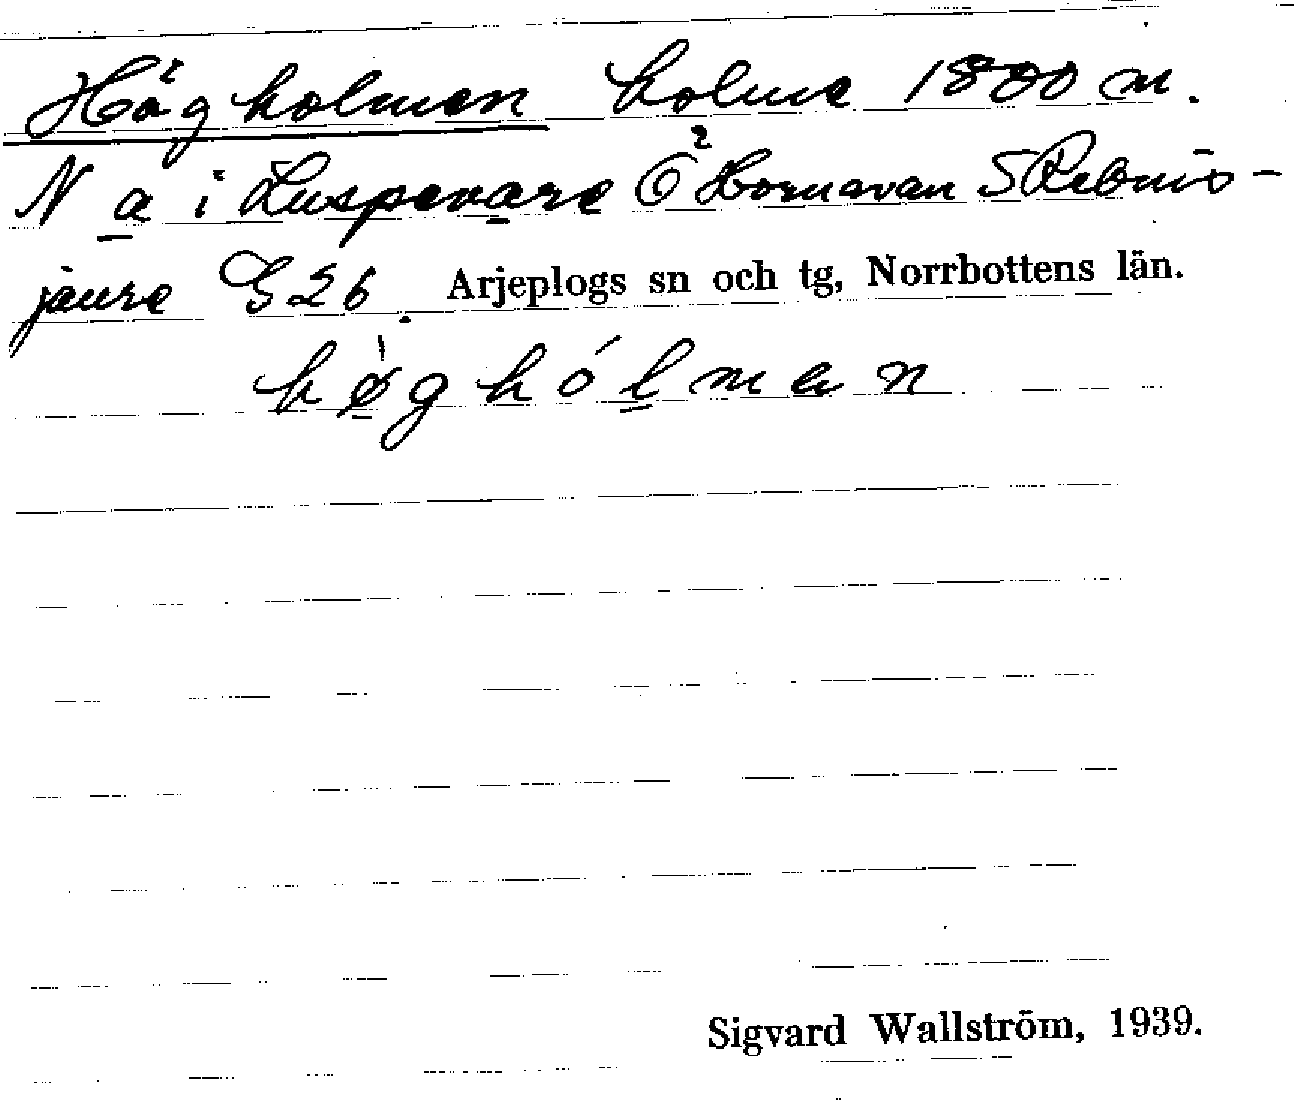 Högholmen holme 1800 m.
N a i Luspevare Ö Hornavan S Rebnis-
jaure G 26. Arjeplogs sn och tg, Norrbottens län.
hø̀ghólmen
Sigvard Wallström, 1939.